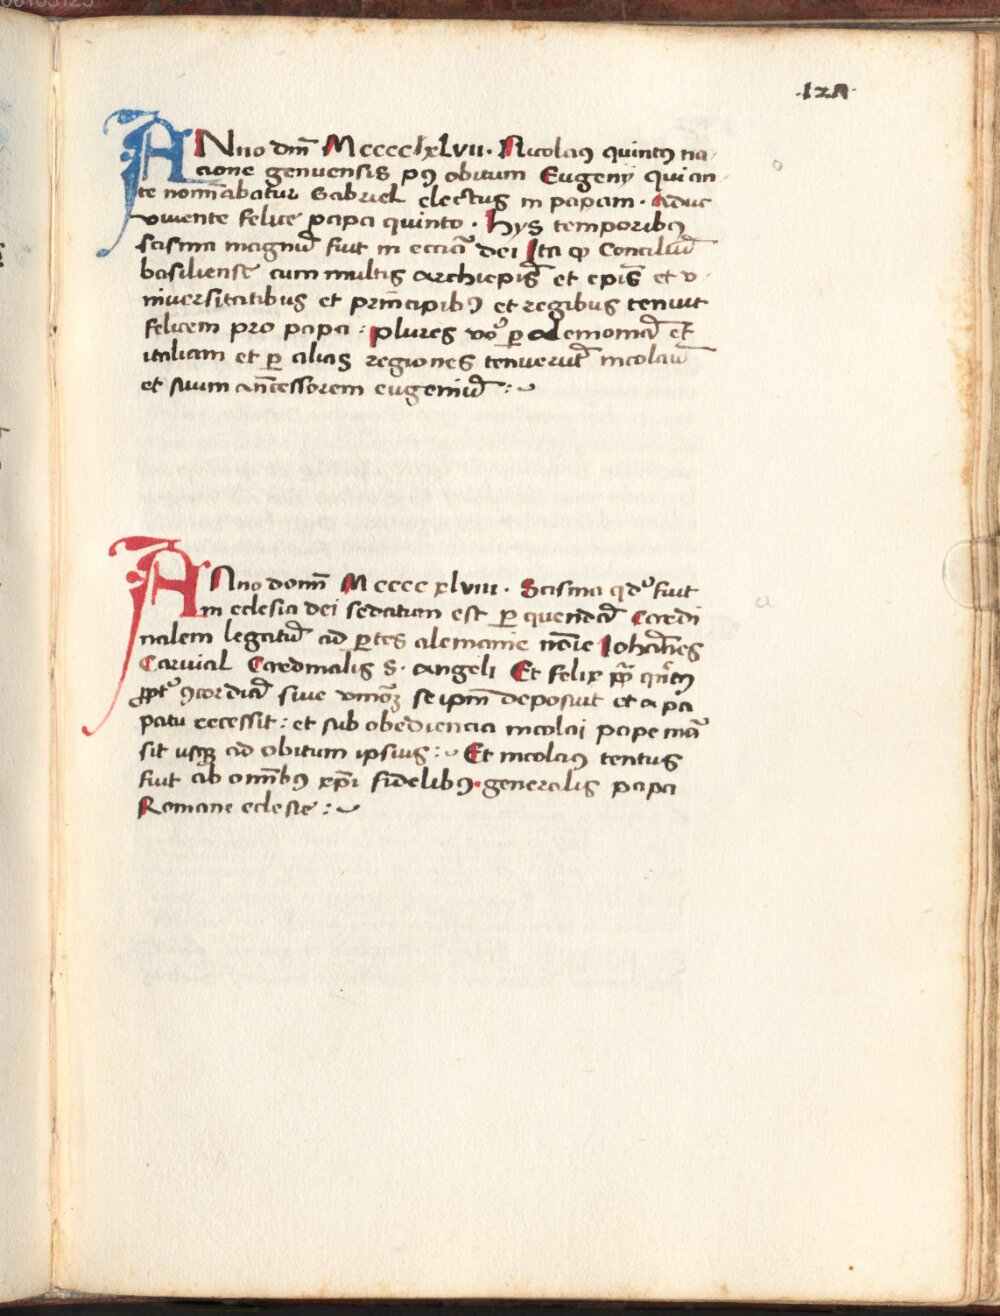 ·124·
ANno dni Mcccclxlvii. Nicolaus quintus na
cione genuensis pus obitum Eugenij qui an
te nominabatur Gabriel electus in papam. Aduc
viuente felice papa quinto. Hys temporibus
scisma magnum fuit in ecclia dei Ita quod Concilium
basiliense cum multis archiepis et epis et v
niuersitatibus et principibus et regibus tenuit
felicem pro papa: plures vo per alemoniam et
italiam et per alias regiones tenuerunt nicolaum
et suum ancessorem eugenium:~
ANno domi Mccccxlviii. Scisma qd fuit
in eclesia dei sedatum est per quendam Cardi
nalem legatum ad partes alemanie noie Iohannes
Caruial Cardinalis S. Angeli Et felix papa quintus
propter concordiam siue vnionem se ipm deposuit et a pa
patu recessit: et sub obediencia nicolai pape man
sit usque ad obitum ipsius:~ Et nicolaus tentus
fuit ab omnibus xpi fidelibus generalis papa
Romane eclesie:~